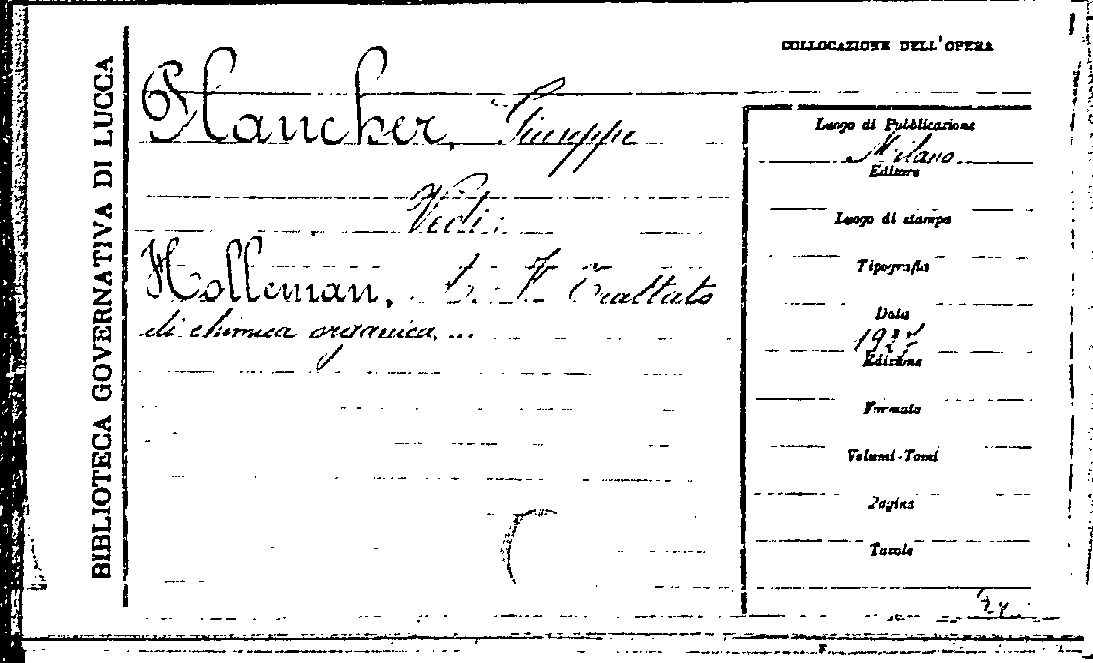 BIBLIOTECA GOVERNATIVA DI LUCCA
COLLOCAZIONE DELL'OPERA
Plancher, Giuseppe
Vedi:
Holleman, A. F. Trattato
di chimica organica...
Luogo di Pubblicazione
Milano
Editore
Luogo di stampa
Tipografia
Data
Edizione
Formato
Volumi-Tomi
Pagine
Tavole